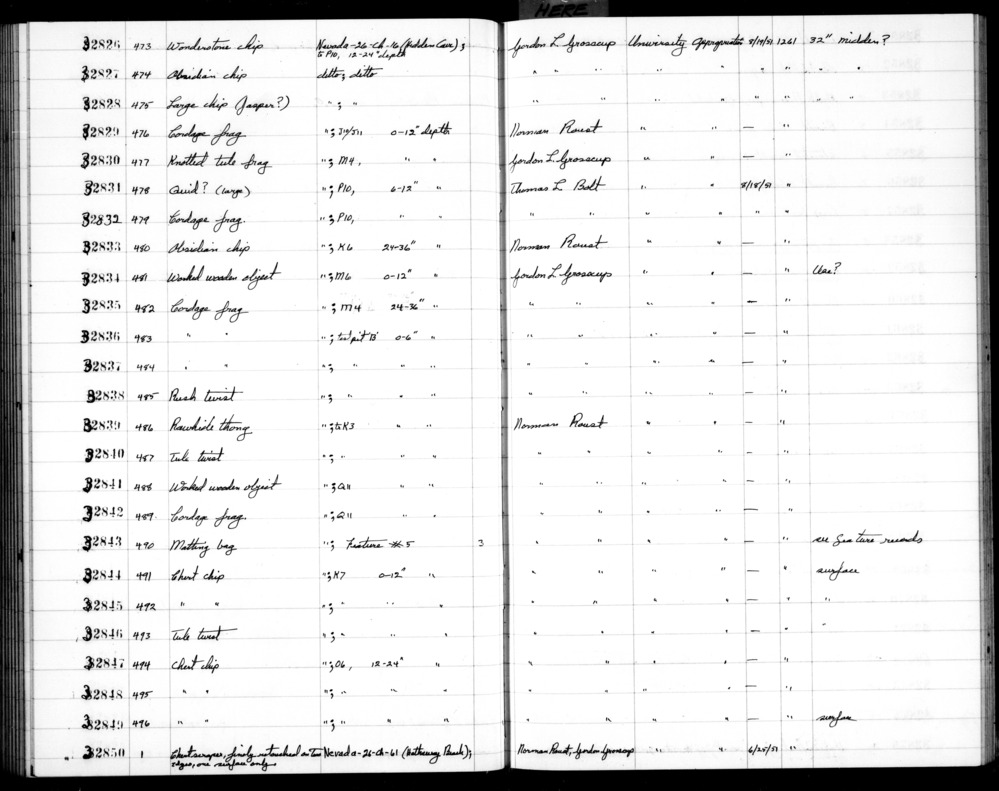 HERE
32826 473 Wonderstone chip Nevada-26-Ch-16 (Hidden Cave); Gordon L. Grosscup University Appropriation 8/19/51 1261 32" midden?
5 P10, 12-24" depth
32827 474 Obsidian chip ditto; ditto " " " " " " " " "
32828 475 Large chip (Jasper?) "; " " " " " " " " "
32829 476 Cordage frag "; 0-12" depth Norman Roust " " — "
32830 477 Knotted tule frag "; M4, " " Gordon L. Grosscup " " — "
32831 478 Quid? (large) "; P10, 6-12" " Thomas L Bolt " " 8/18/51 "
32832 479 Cordage frag. "; P10, " " " " " " — "
32833 480 Obsidian chip "; K6 24-36" " Norman Roust " " — "
32834 481 Worked wooden object "; M6 0-12" " Gordon L Grosscup " " — " Use?
32835 482 Cordage frag "; M4 24-36" " " " " " — "
32836 483 " " "; test pit 'B' 0-6" " " " " " — "
32837 484 " " "; " " " " " " " — "
32838 485 Rush twist "; " " " " " " " — "
32839 486 Rawhide thong "; K3 " " Norman Roust " " — "
32840 487 Tule twist "; " " " " " " " — "
32841 488 Worked wooden object "; Q11 " " " " " " — "
32842 489 Cordage frag. "; Q11 " " " " " " — "
32843 490 Matting bag "; Feature #5 3 " " " " — " see feature records
32844 491 Chert chip "; K7 0-12" " " " " " — " surface
32845 492 " " "; " " " " " " " — " "
32846 493 Tule twist "; " " " " " " " — " "
32847 494 Chert chip "; O6, 12-24" " " " " " — "
32848 495 " " "; " " " " " " " — "
32849 496 " " "; " " " " " " " — " surface
32850 1 Chert scraper, finely retouched on two Nevada-26-Ch-61 (Hathaway Beach); Norman Roust, Gordon Grosscup " " 6/25/51 "
edges, one surface only.